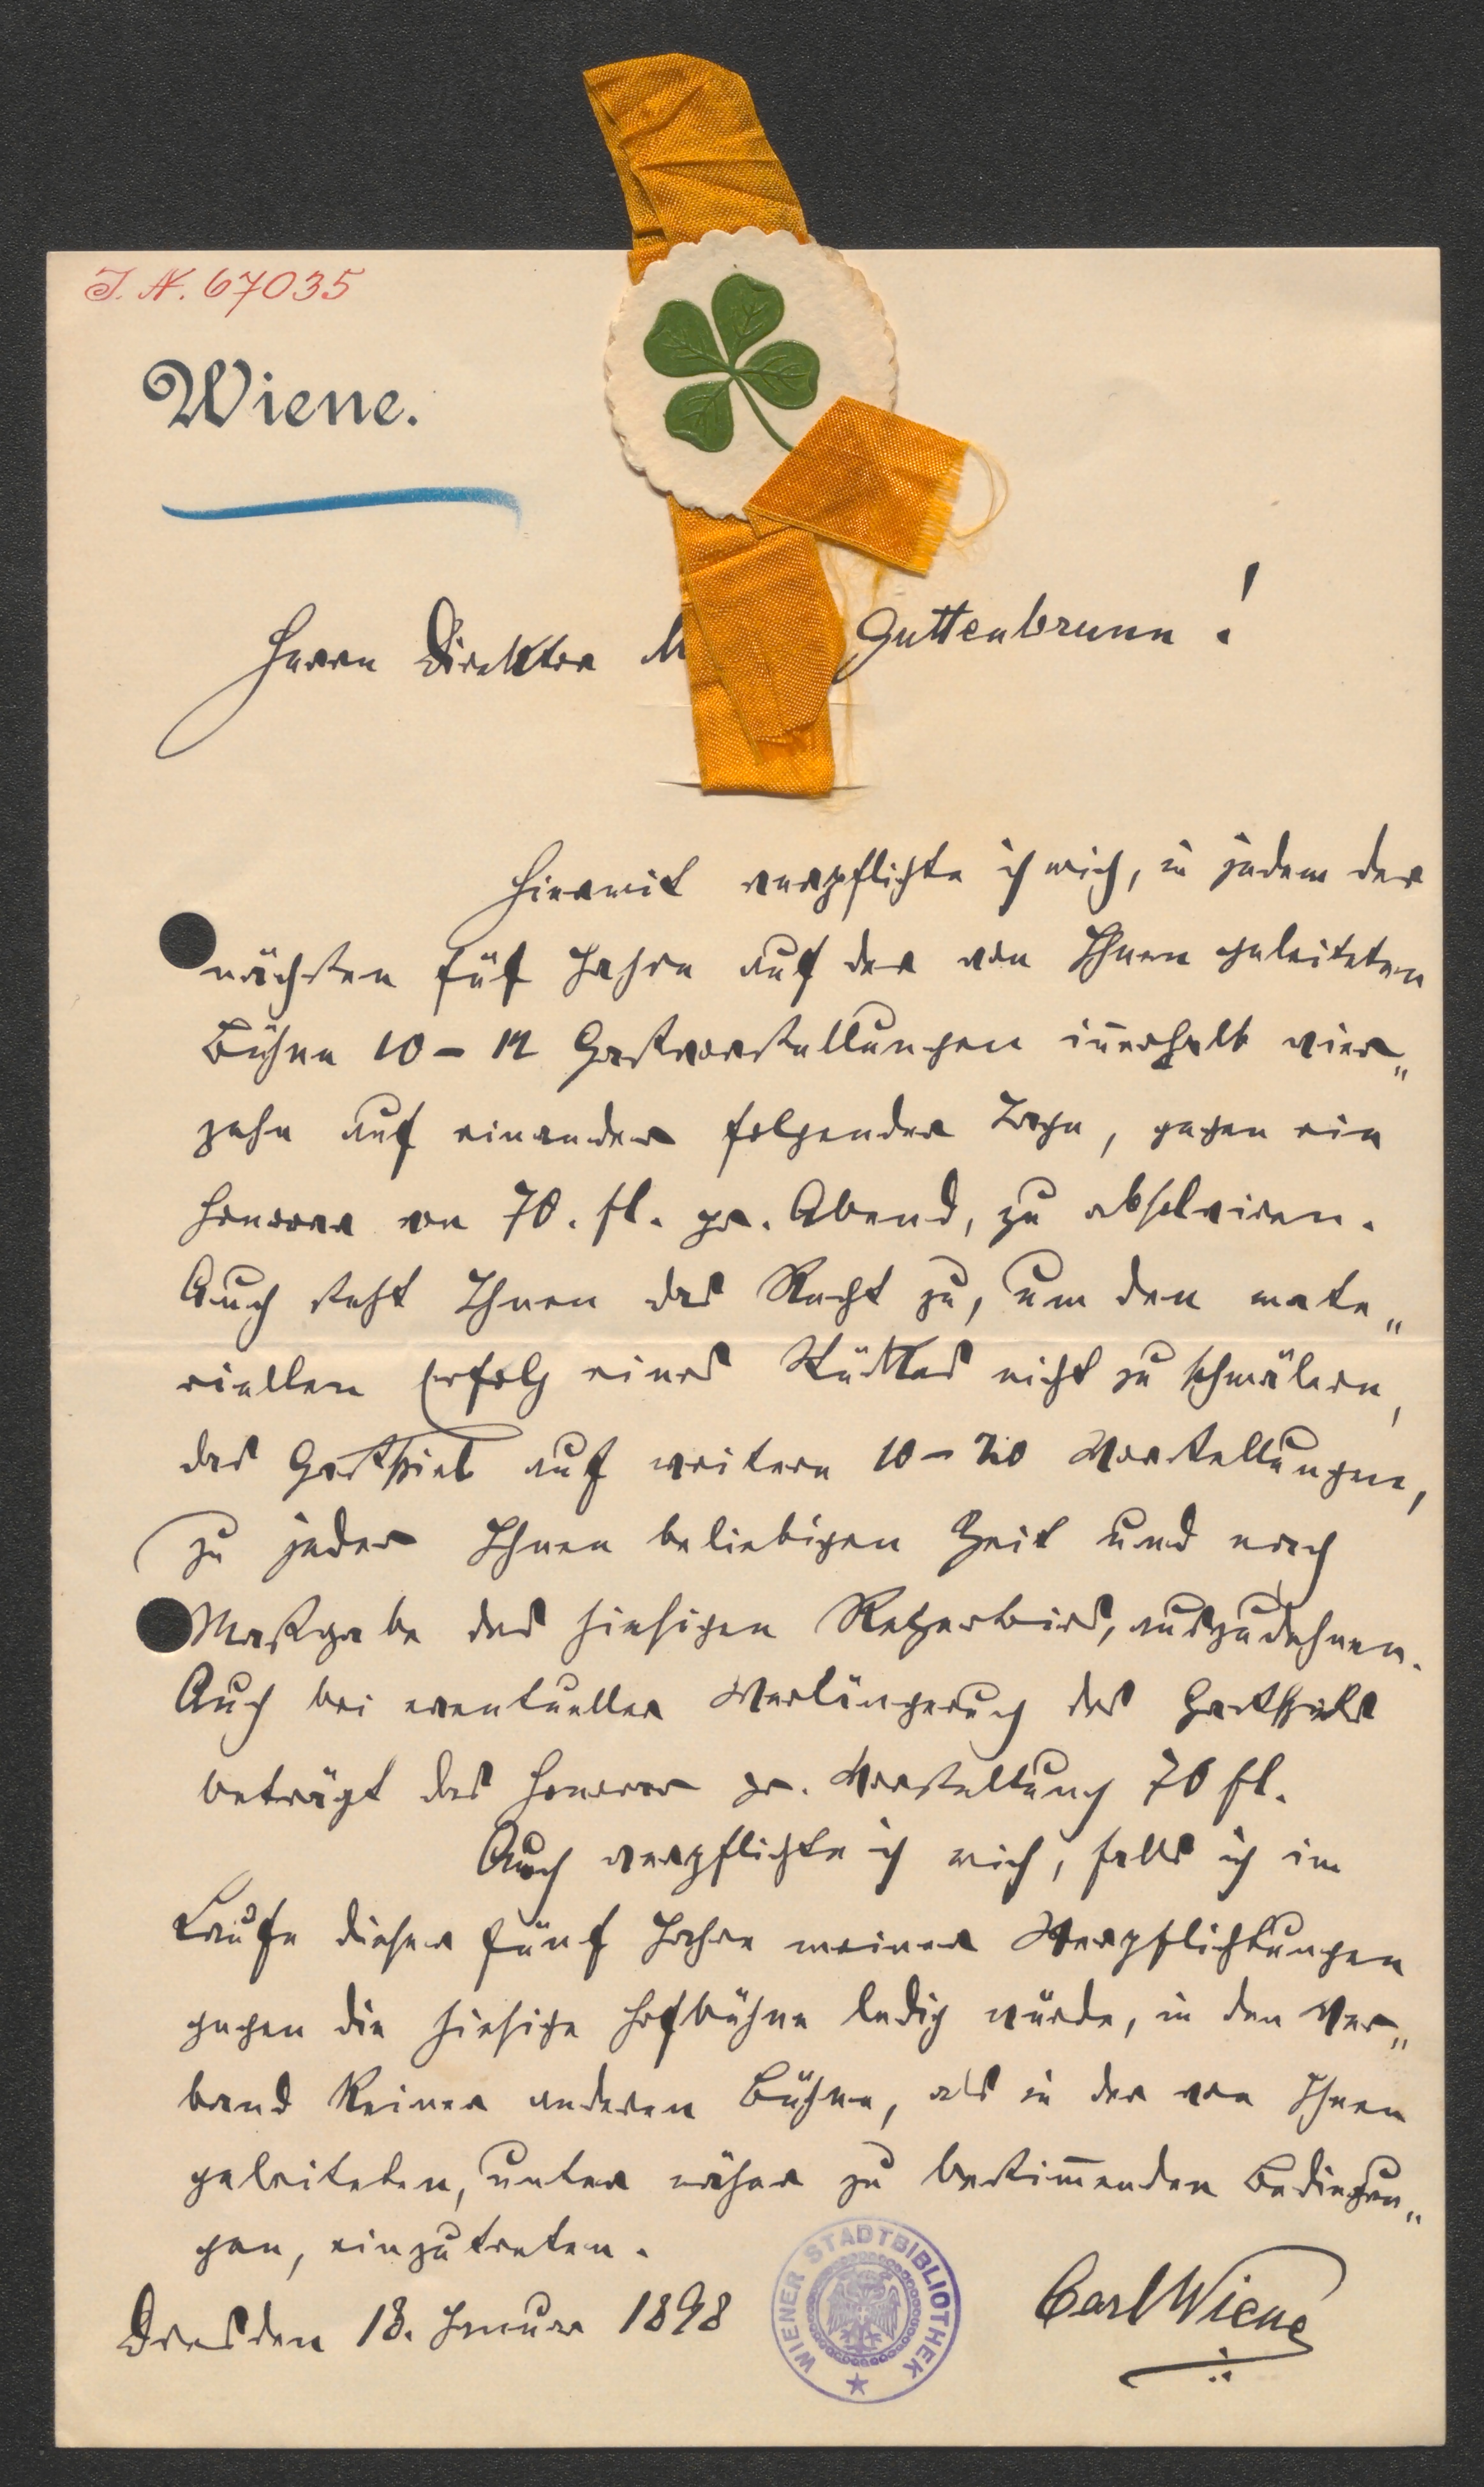 J. N. 67035
Wiene.
Herrn Direktor M Guttenbrunn!
Hiermit verpflichte ich mich, in jedem der
nächsten füf Jahre auf der von Ihnen geleiteten
Bühne 10 – 12 Gastvorstellungen in̅erhalb vier„
zehn auf einander folgender Tage, gegen ein
Honorar von 70. fl. pr. Abend, zu absolviren.
Auch steht Ihnen das Recht zu, um den mate„
riellen Erfolg eines Stückes nicht zu schmälern,
das Gastspiel auf weitere 10 – 20 Vorstellungen,
zu jeder Ihnen beliebigen Zeit und nach
Maßgabe des hiesigen Repertoirs, auszudehnen.
Auch bei eventueller Verlängerung des Gastspiels
beträgt das Honorar pr. Vorstellung 70 fl.
Auch verpflichte ich mich, falls ich im
Laufe dieser fünf Jahre meiner Verpflichtungen
gegen die hiesige Hofbühne ledig würde, in den Ver„
band keiner anderen Bühne, als in der von Ihnen
geleiteten, unter näher zu bestim̅enden Bedingun„
gen, einzutreten.
Dresden 18. Januar 1898
WIENER STADTBIBLIOTHEK
Carl Wiene